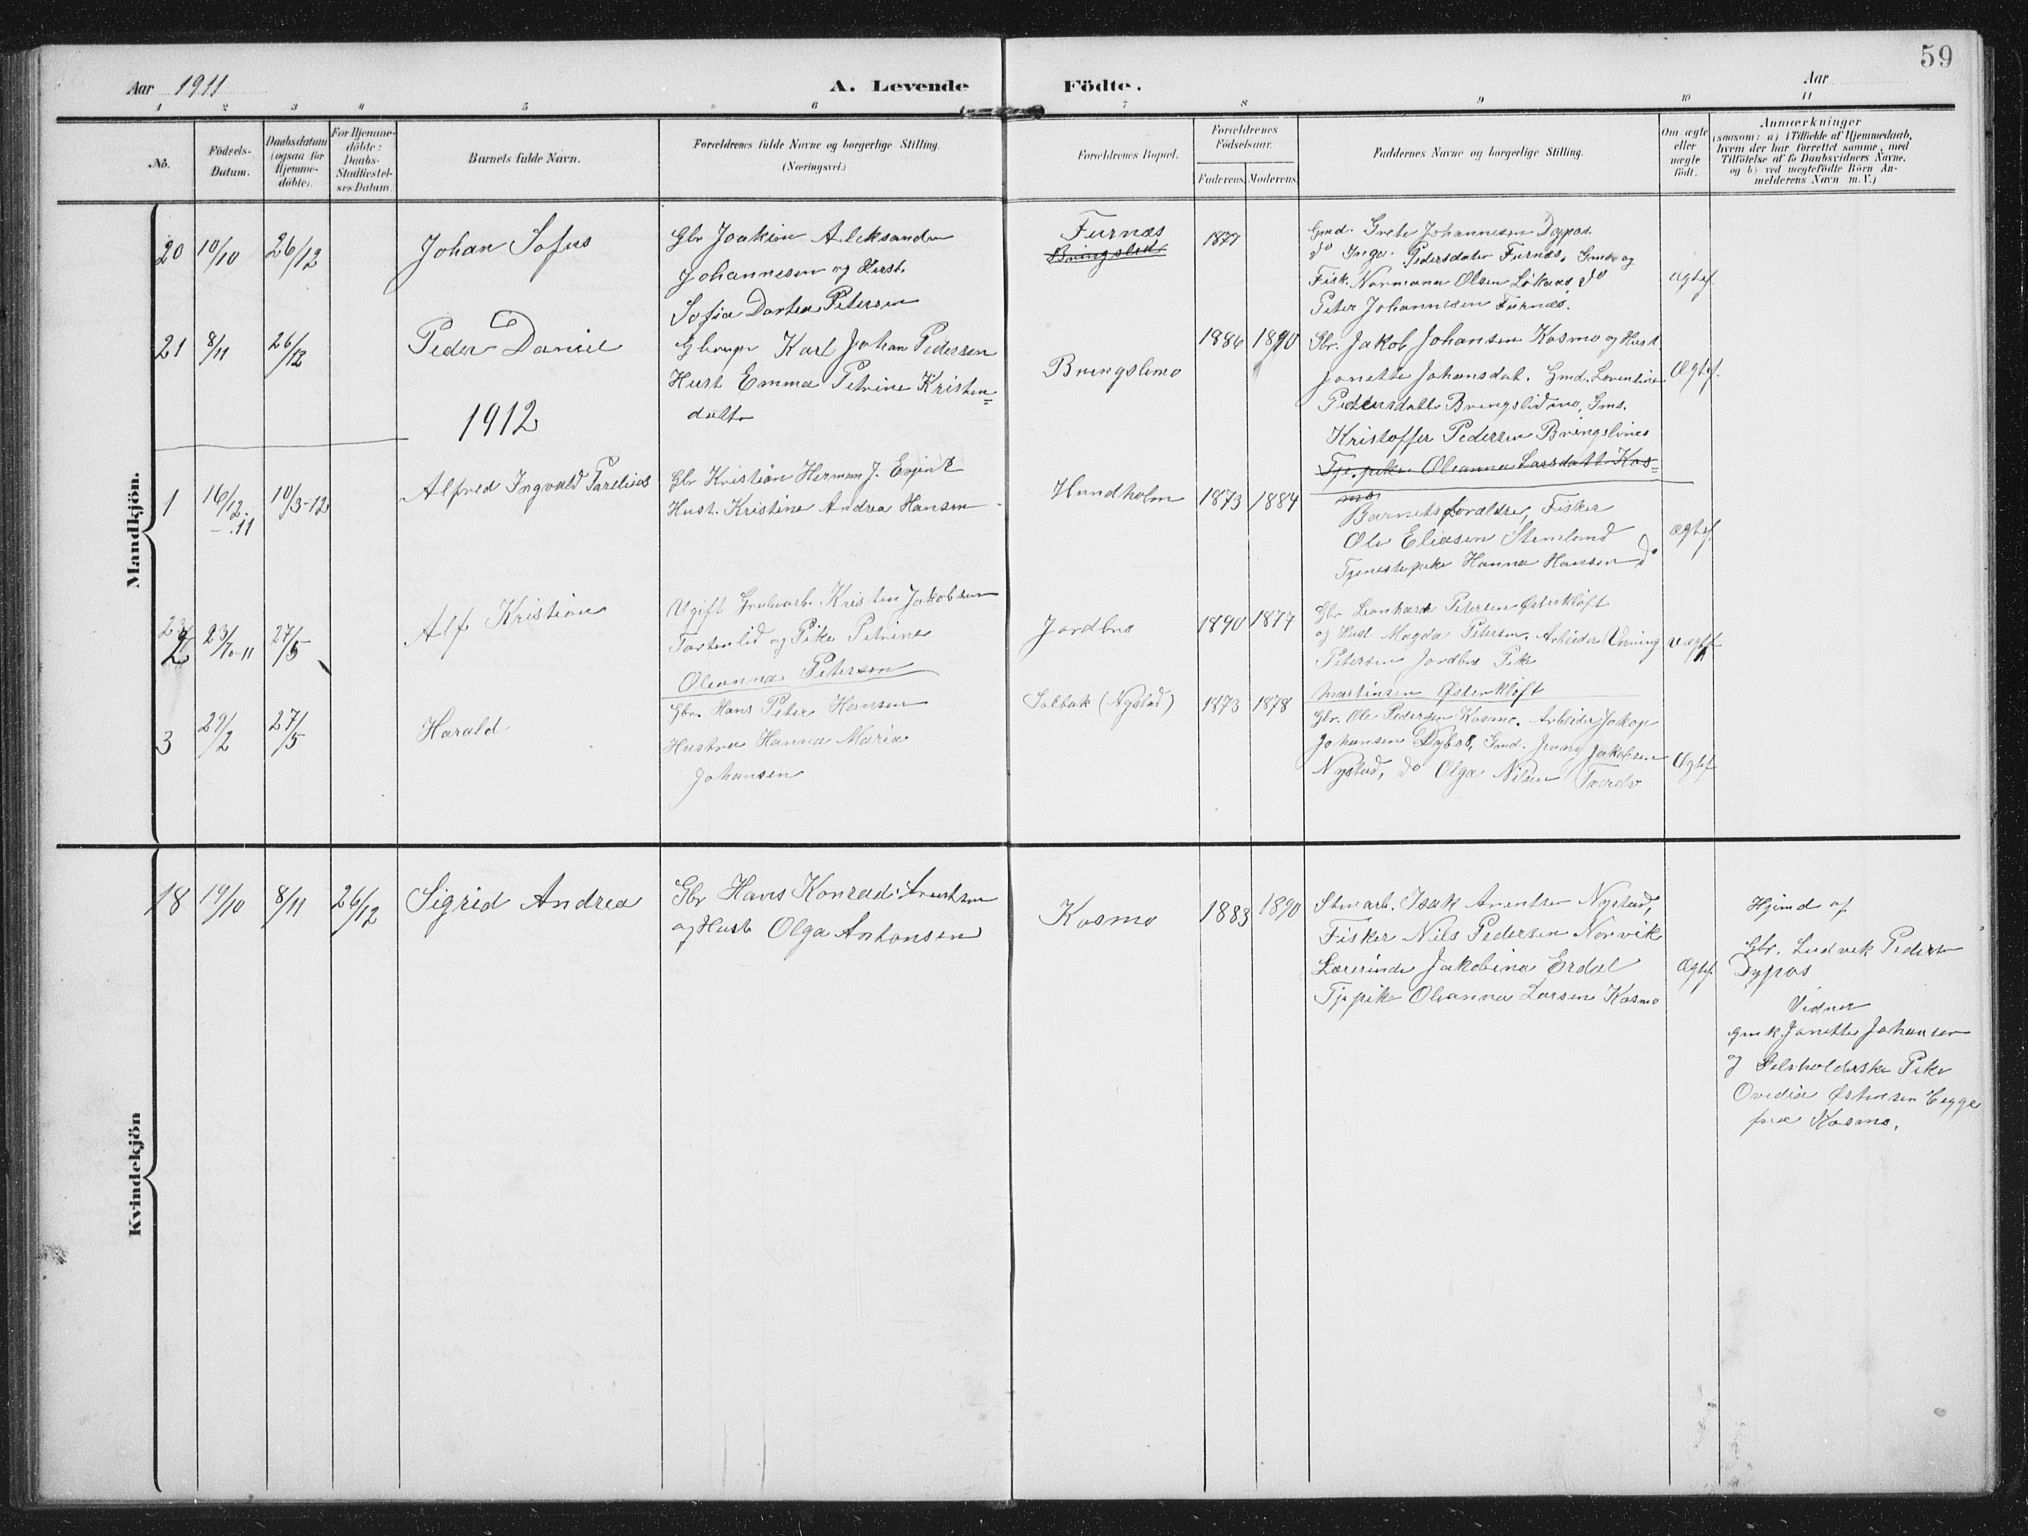 59
Aar 1911
A. Levende
Födte.
Aar
1 2 3 4 5 6 7 8 9 10 11
No.
Födsels-
Datum.
Daabsdatum
(ogsaa for
Hjemme-
döbte).
For Hjemme-
döbte:
Daabs-
Stadfæstel-
ses Datum.
Barnets fulde Navn.
Forældrenes fulde Navne og borgerlige Stilling.
(Næringsvei.)
Forældrenes Bopæl.
Forældrenes
Födselsaar.
Faderens. Moderens.
Faddernes Navne og borgerlige Stilling.
Om ægte
eller
uægte
födt.
Anmærkninger
(saasom: a) i Tilfælde af Hjemmedaab,
hvem der har forrettet samme, med
Tilföielse af to Daabsvidners Navne,
og b) ved uægtefödte Börn An-
melderens Navn m. V.)
Mandkjön.
20 10/10 26/12
Johan Sofus
Gbr Joakim Aleksander
Johannesen og Hust.
Sofia Dortea Petersen
Furnæs
Bringslid
1877
Gmd. Grete Johannesen Dypos.
do Inga Pedersdater Furnæs, Gmds og
Fisk. Normann Olsen Løkaas, do
Peter Johannesen Furnæs.
Ægtef.
21 8/11 26/12
Peder Daniel
Karl Johan Pedersen
Hust Emma Petrine Kristen=
datter
Bringslimo
1886 1890
Gbr. Jakob Johansen Kosmo og Hust.
Janette Johansdat. Gmd. Lorentine
Pedersdatter Bringslidmo, Gms.
Kristoffer Pedersen Bringslimo
Tje.pike Oleanna Larsdatt Kos=
mo
Ægtef.
1912
1 16/12 -11 10/3-12
Alfred Ingvald Parelius
Gbr Kristian Herman J. Evjen &
Hust. Kristine Andrea Hansen
Hundholm
1873 1884
Barnets forældre, Fisker
Ole Eliasen Stenland
Tjenestepike Hanna Hansen do
ægtef.
2 23/10-11 27/5
Alf Kristian
Ugift Grubearb. Kristen Jakobsen
Tortenlid og Pike Petrine
Oleanna Petersen
Jordbro
1890 1877
Gbr Leonhard Petersen Østerkløft
og Hust Magda Petersen. Arbeider
Petersen Jordbro Pike
Martinsen Østerkløft
uægtef
3 29/2 27/5
Harald
Gbr. Hans Peter Hansen
Hustru Hanna Maria
Johansen
Solbak (Nystad)
1873 1878
Gbr. Ole Pedersen Kosmo. Arbeider Jakop
Johansen Dypos, Gmd. Jenny Jakobsen
Nystad, do Olga Nilsen Tverbo
Ægtef
Kvindekjön
18 19/10 8/11 26/12
Sigrid Andrea
Gbr Hans Konrad Arentsen
og Hust Olga Antonsen
Kosmo
1883 1890
Stenarb. Isak Arentsen Nystad,
Fisker Nils Pedersen Norvik
Lærerinde Jakobina Erdal
Tjepike Oleanna Larsen Kosmo
Ægtef.
Hjemd af
Gbr. Ludvik Pedersen
Dypos
Vidner
gmk. Janette Johansen
og Selvholderske Pike
Ovidia Østensen Eegge
fra Kosmo.